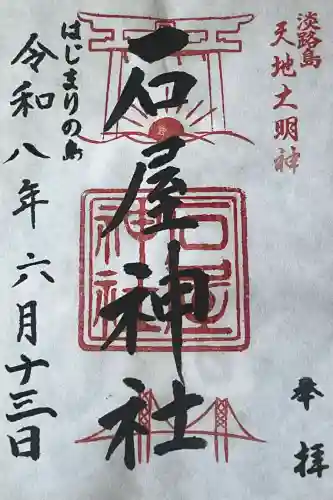 淡路島
天地大明神
奉拝
石屋神社
石屋
神社
はじまりの島
令和八年六月十三日